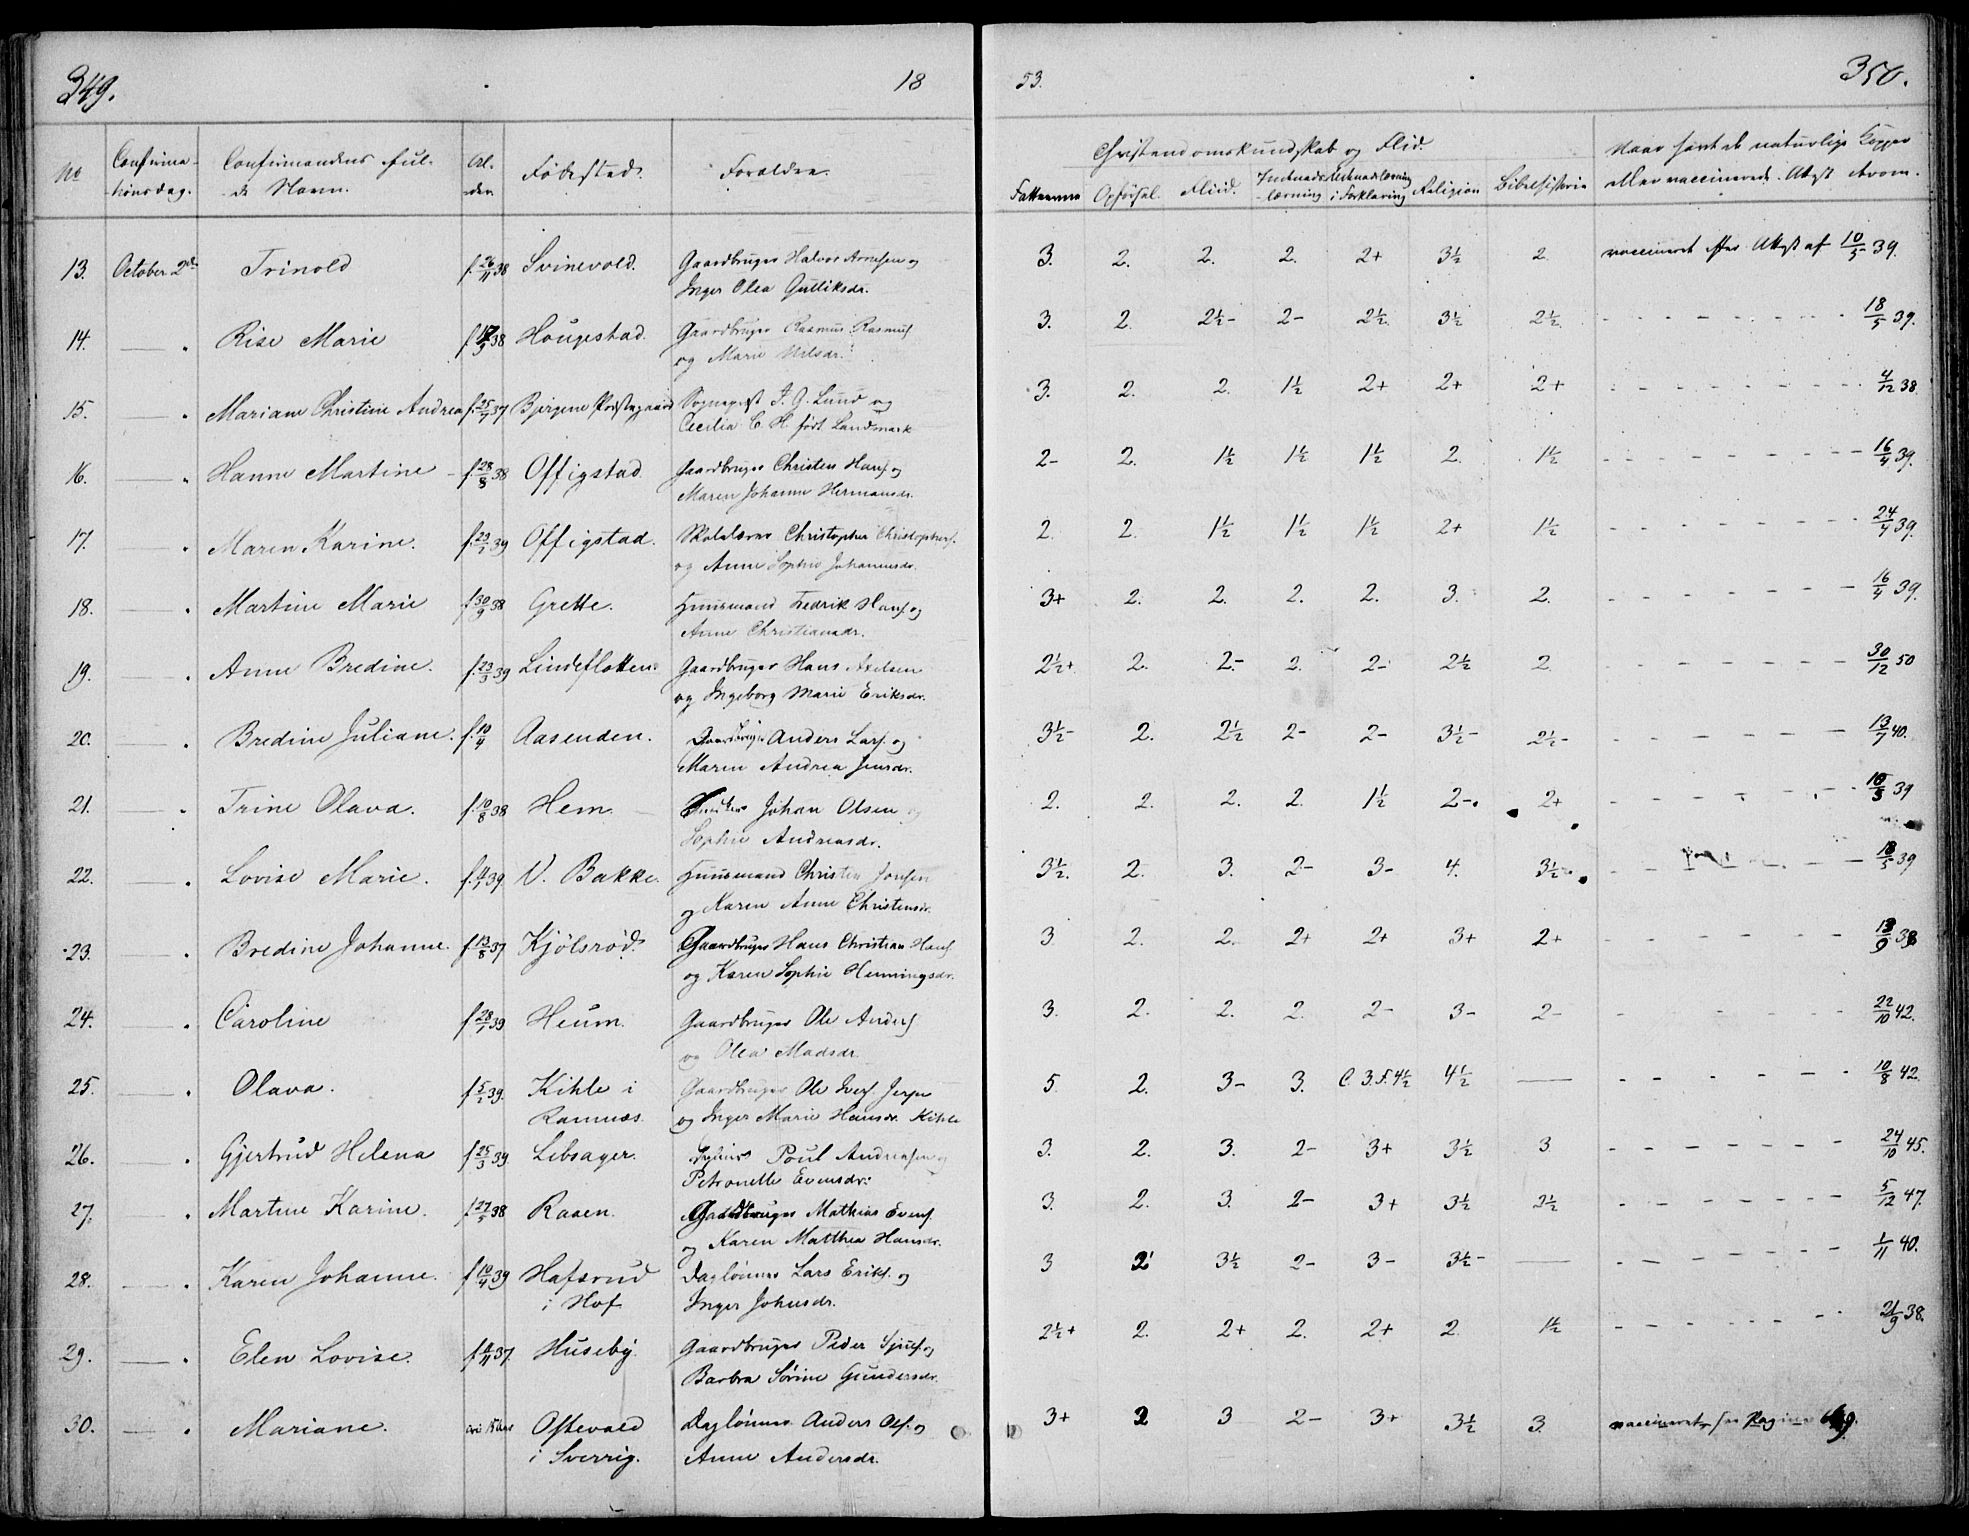 349.
18
53.
350.
No
Confirma-
tionsdag.
Confirmandens ful-
de Navn.
Al-
der.
Fødested.
Forældre.
Christendomskundskab og Flid.
Fatteevne Opførsel. Fliid. Indenadslæsning i Forklaring Religion Bibelhistorie
Naar havt de naturlige Kopper
eller vaccinerede. Attest derom.
13. October 2d Trinold f. 26/11 38 Svinevold. Gaardbruger Halvor Arnesen og
Inger Olea Gulliksdr.
3. 2. 2. 2. 2+ 3½ 2 vaccineret efter Attest af 10/5 39.
14. — " Rise Marie 38 Hougestad. Gaardbruger Rasmus Rasmus.
og Marie Nilsdr.
3. 2. 2½- 2- 2½. 3½ 2½. 18/5 39.
15. — " Mariane Christine Andrea f. 25/7 37 Bjergene Præstegaard Sognepræst J. G. Lund og
Cecilia C. H. født Landmark
3. 2. 2. 1½ 2+ 2+ 2+ 4/12 38
16. — " Hanne Martine f. 28/8 38 Offigstad Gaardbruger Christen Hans. og
Maren Johanne Hermansdr.
2- 2. 1½ 1½ 1½ 2. 1½ 16/4 39.
17. — " Maren Karine. 39 Offigstad. Skolelærer Christopher Christophers.
og Anne Sophie Johannesdr.
2. 2. 1½ 1½ 1½ 2+ 1½ 24/4 39.
18. — " Martine Marie f. 30/9 38 Grette. Huusmand Fredrik Hans. og
Anne Christiansdr.
3+ 2. 2. 2. 2. 3. 2. 16/4 39.
19. — " Anne Bredine. f. 23/3 39 Lindeflotten Gaardbruger Hans Axelsen
og Ingeborg Marie Eriksdr.
2½+ 2. 2.- 2. 2- 2½ 2 30/12 50
20. — " Bredine Juliane. f. 10/4 Aasenden. Gaardbruger Anders Lars. og
Maren Andrea Jensdr.
3½- 2. 2½ 2- 2- 3½- 2½- 13/7 40.
21. — " Trine Olava. f. 10/8 38 Hem. Johan Olsen og
Sophie Andreasdr.
2. 2. 2. 2. 1½ 2-. 2+ 10/5 39
22. — " Lovise Marie. 39. V. Bakke. Huusmand Christen Jonsen
og Karen Anne Christensdr.
3½. 2. 3. 2- 3- 4. 3½- 18/5 39
23. — " Bredine Johanne. f. 13/8 37 Kjølsrød. Gaardbruger Hans Christian Hans.
og Karen Sophie Henningsdr.
3 2. 2. 2+ 2+ 3+ 2+ 13/9 38
24. — " Caroline f. 28/1 39 Heum. Gaardbruger Ole Anders.
og Olea Madsdr.
3. 2. 2. 2. 2- 3- 2- 22/10 42.
25. — " Olava. f. 5/2 39. Kihle i Gaardbruger Ole Ivers. Jerpe
Ramnæs. og Inger Marie Hansdr. Kihle
5. 2. 3- 3. C. 3.5.4½ 4½ — 10/8 42.
26. — " Gjertrud Helena f. 25/3 39 Libsager. Poul Andreasen og
Petronelle Evensdr.
3. 2. 3. 2- 3+ 3½ 3 24/10 45.
27. — " Martine Karine. f. 27/5 38 Raaen. Gaardbruger Mathias Evens.
og Karen Matthea Hansdr.
3. 2. 3. 2- 3+ 3½ 2½ 5/12 47.
28. — " Karen Johanne. f. 10/4 39 Hafsrud Daglønner Lars Eriks. og
i Hof Inger Johnsdr.
3 2 3½ 2- 3- 3½- — 1/11 40.
29. — " Elen Lovise. 37. Huseby. Gaardbruger Peder og
Barbra Sørine Gundersdr.
2½+ 2. 2+ 2. 2+ 2. 1½ 21/9 38.
30. — " Mariane. Ostevald Daglønner Anders Ols. og
i Sverrig. Anne Andersdr.
3+ 2 3 2- 3+ 3½ 3. vaccineret, see Pagina